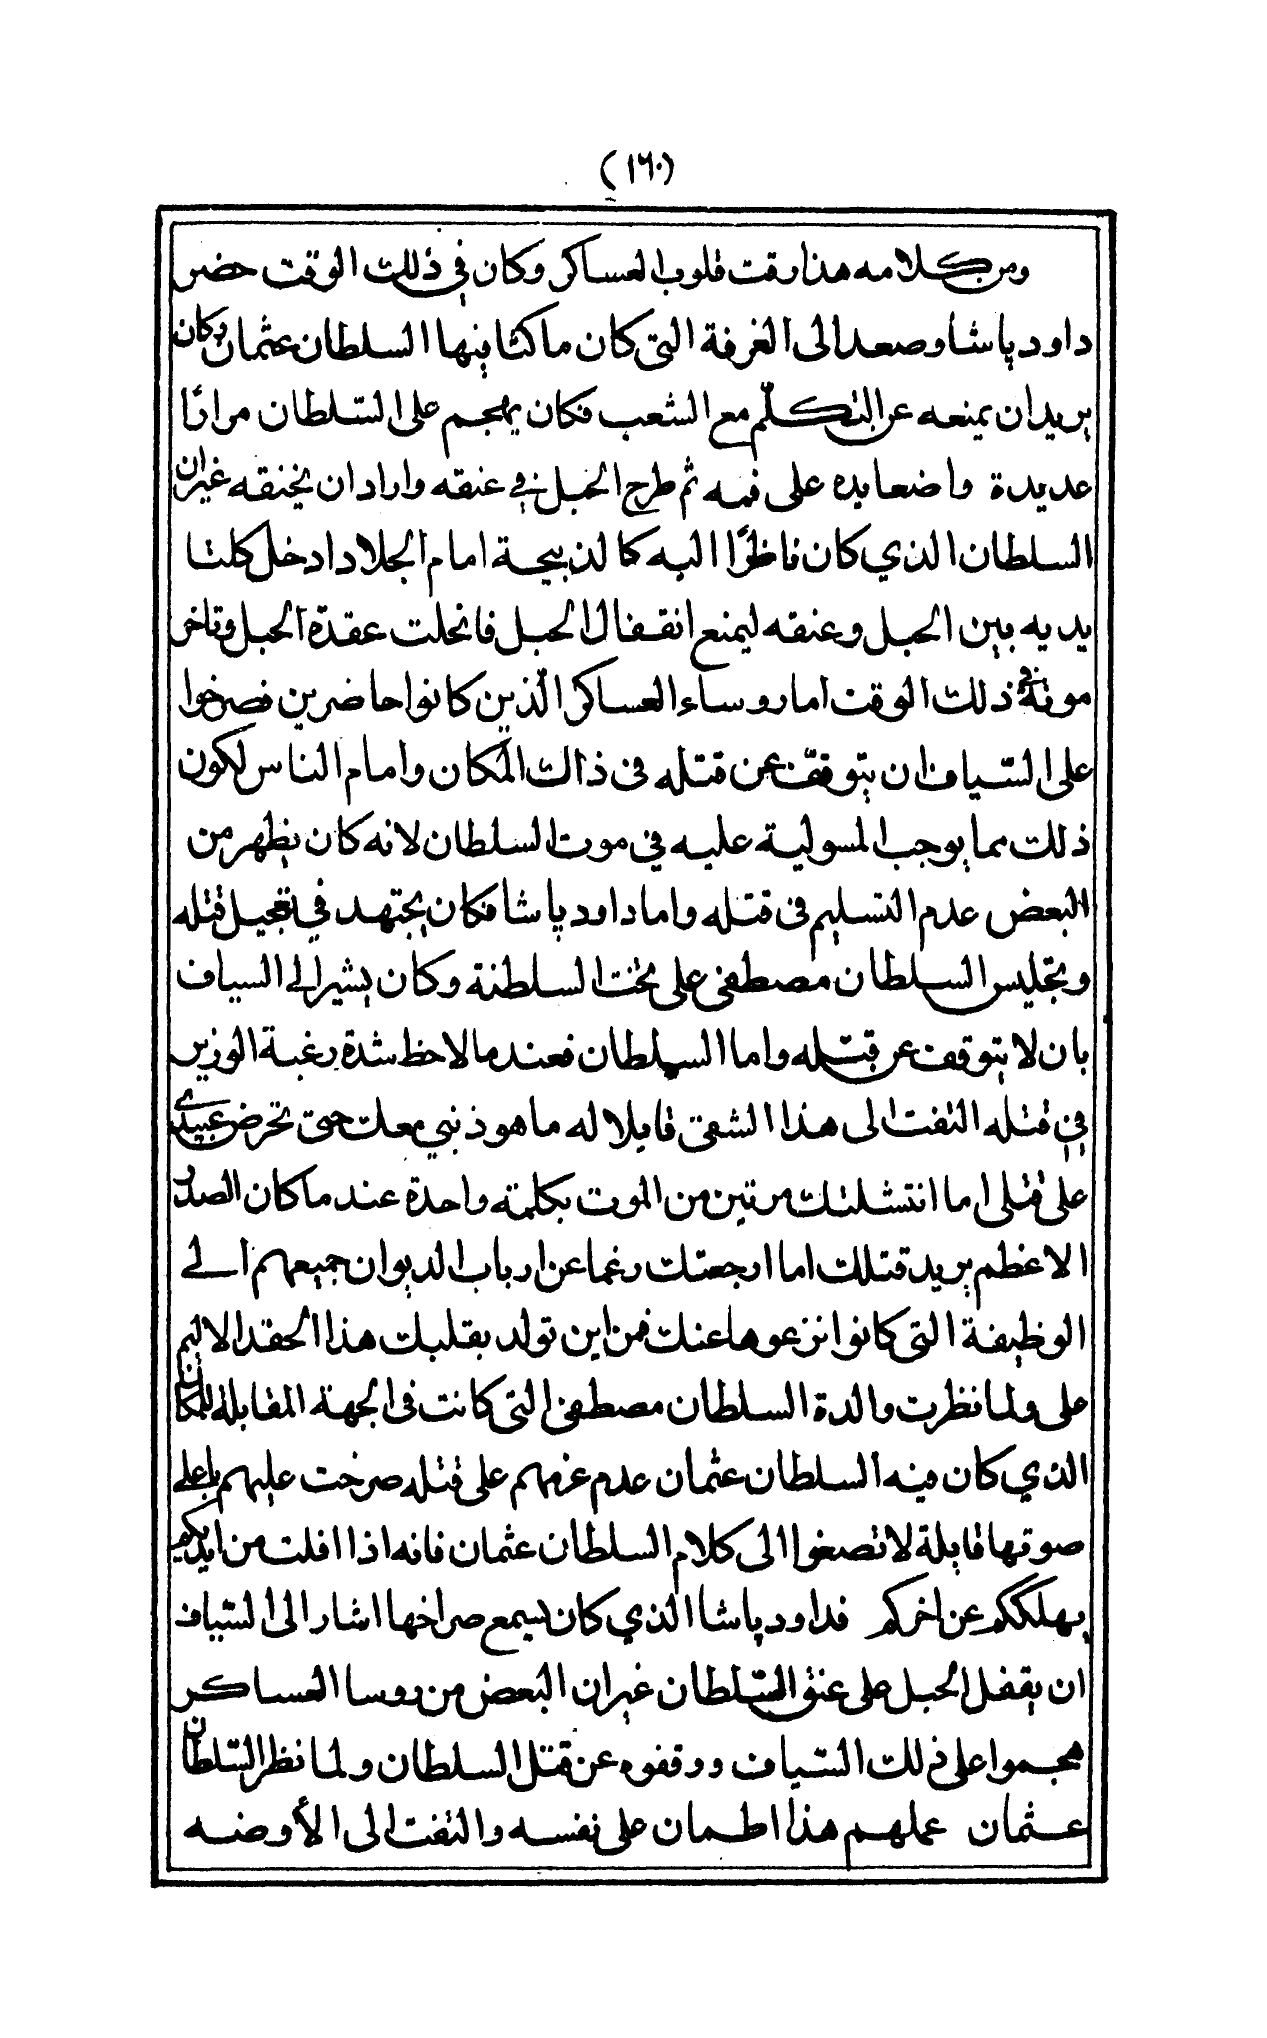 (١٦٠)
ومن كلامه هذا رقت قلوب العساكر وكان في ذلك الوقت حضر
داود پاشا وصعد الى الغرفة التي كان ماكثا فيها السلطان عثمان وكان
يريد ان يمنعه عن التكلّم مع الشعب فكان يهجم على السّلطان مرارًا
عديدة واضعا يده على فمه ثم طرح الحبل في عنقه واراد ان يخنقه غير ان
السلطان الذي كان ناظرًا اليه كالذبيحة امام الجلاد ادخل كلتا
يديه بين الحبل وعنقه ليمنع انقفال الحبل فانحلت عقدة الحبل وتاخر
موته في ذلك الوقت اما روساء العساكر الّذين كانوا حاضرين فصرخوا
على السّياف ان يتوقّف عن قتله في ذاك المكان وامام الناس لكون
ذلك مما يوجب المسولية عليه في موت السلطان لانه كان يظهر من
البعض عدم التسليم في قتله واما داود پاشا فكان يجتهد في تعجيل قتله
وتجليس السلطان مصطفى على تخت السلطنة وكان يشير الى السياف
بان لا يتوقف عن قتله واما السلطان فعند ما لاحظ شدة رغبة الوزير
في قتله التفت الى هذا الشقي قايلا له ما هو ذنبي معك حتى تحرض عبيدي
على قتلي اما انتشلتك مرتين من الموت بكلمة واحدة عند ما كان الصدر
الاعظم يريد قتلك اما ارجعتك رغما عن ارباب الديوان جميعهم الى
الوظيفة التي كانوا نزعوها عنك فمن اين تولد بقلبك هذا الحقد الاليم
على ولما نظرت والدة السلطان مصطفى التي كانت في الجهة المقابلة للمكان
الذي كان فيه السلطان عثمان عدم عزمهم على قتله صرخت عليهم باعلى
صوتها قايلة لا تصغوا الى كلام السلطان عثمان فانه اذا افلت من ايديكم
يهلككم عن اخركم فداود پاشا الذي كان يسمع صراخها اشار الى السّياف
ان يقفل الحبل على عنق السّلطان غير ان البعض من روسا العساكر
هجموا على ذلك السّياف ووقفوه عن قتل السلطان ولما نظر السّلطان
عثمان عملهم هذا اطمان على نفسه والتفت الى الأوضه